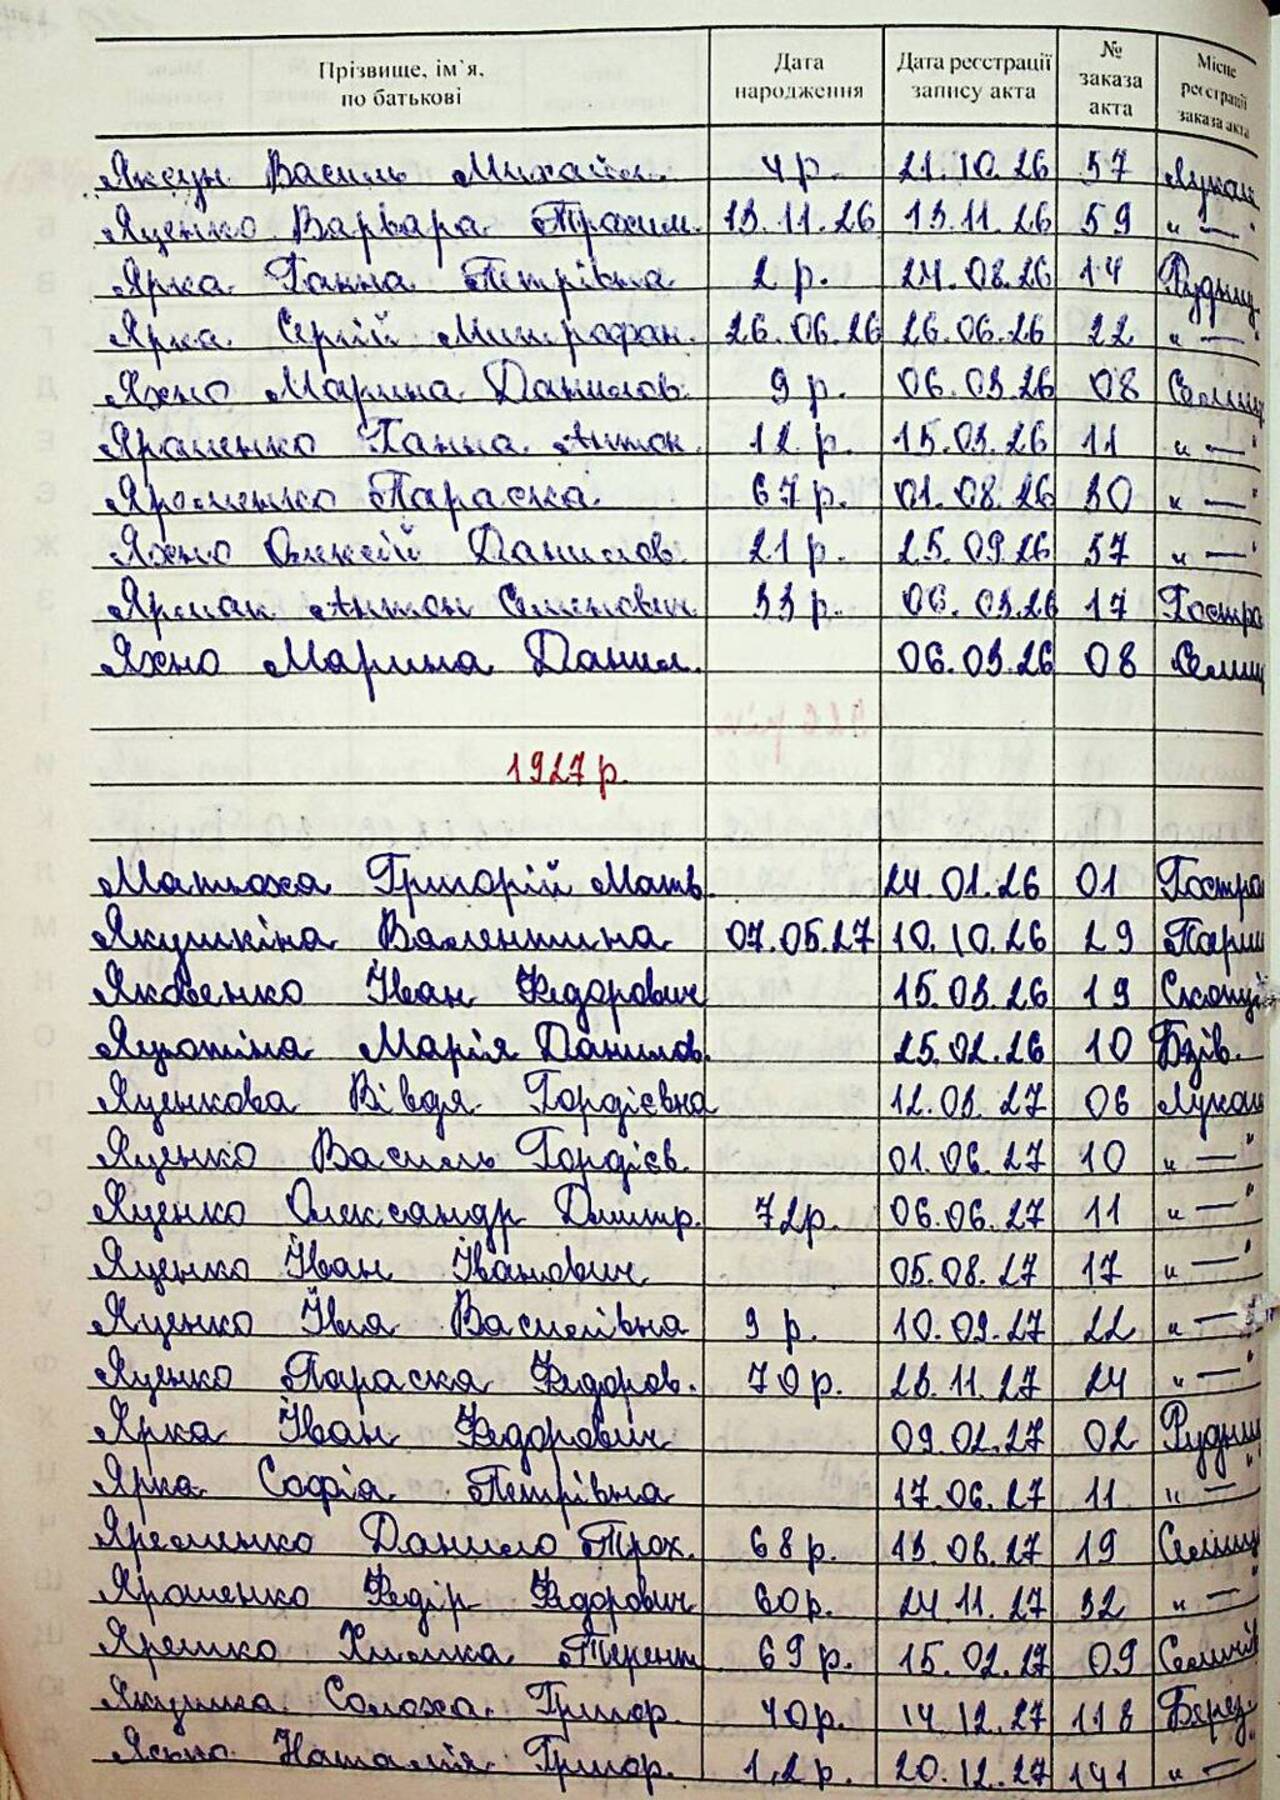 Прізвище, ім`я, по батькові | Дата народження | Дата реєстрації запису акта | № заказа акта | Місце реєстрації заказа акта
Яксун Василь Михайл. 4 р. 21.10.26 57 Лукаш
Яценко Варвара Трохим. 13.11.26 13.11.26 59 "—"
Ярка Ганна Петрівна 2 р. 24.08.26 14 Рудниц
Ярка Сергій Митрофан. 26.06.26 26.06.26 22 "—"
Яхно Марина Данилов. 9 р. 06.03.26 08 Селищ
Ярошенко Ганна Антон. 12 р. 15.03.26 11 "—"
Яременко Параска 67 р. 01.08.26 30 "—"
Яхно Олексій Данилов. 21 р. 25.09.26 57 "—"
Ярмак Антон Семенович 33 р. 06.03.26 17 Гостро
Яхно Марина Данил. 06.03.26 08 Селищ
1927 р.
Матюха Григорій Матв. 24.01.26 01 Гостро
Якушкіна Валентина 07.05.27 10.10.26 29 Париш
Яковенко Іван Федорович 15.03.26 19 Скопці
Марія Данилов. 25.02.26 10 Бзів.
Яценкова Вівдя Гордієвна 12.03.27 06 Лукаш
Яценко Василь Гордієв. 01.06.27 10 "—"
Яценко Олександр Дмитр. 72 р. 06.06.27 11 "—"
Яценко Іван Іванович 05.08.27 17 "—"
Яценко Ївга Василівна 9 р. 10.09.27 22 "—"
Яценко Параска Федоров. 70 р. 23.11.27 24 "—"
Ярка Іван Федорович 09.02.27 02 Рудниц
Ярка Софіа Петрівна 17.06.27 11 "—"
Яременко Данило Трох. 68 р. 13.08.27 19 Селищ
Ярошенко Федір Федорович 60 р. 24.11.27 32 "—"
Яремко Химка Терент. 69 р. 15.02.27 09 Селичів
Якушка Солоха Григор. 40 р. 14.12.27 118 Берез.
Наталія Григор. 1,2 р. 20.12.27 141 "—"